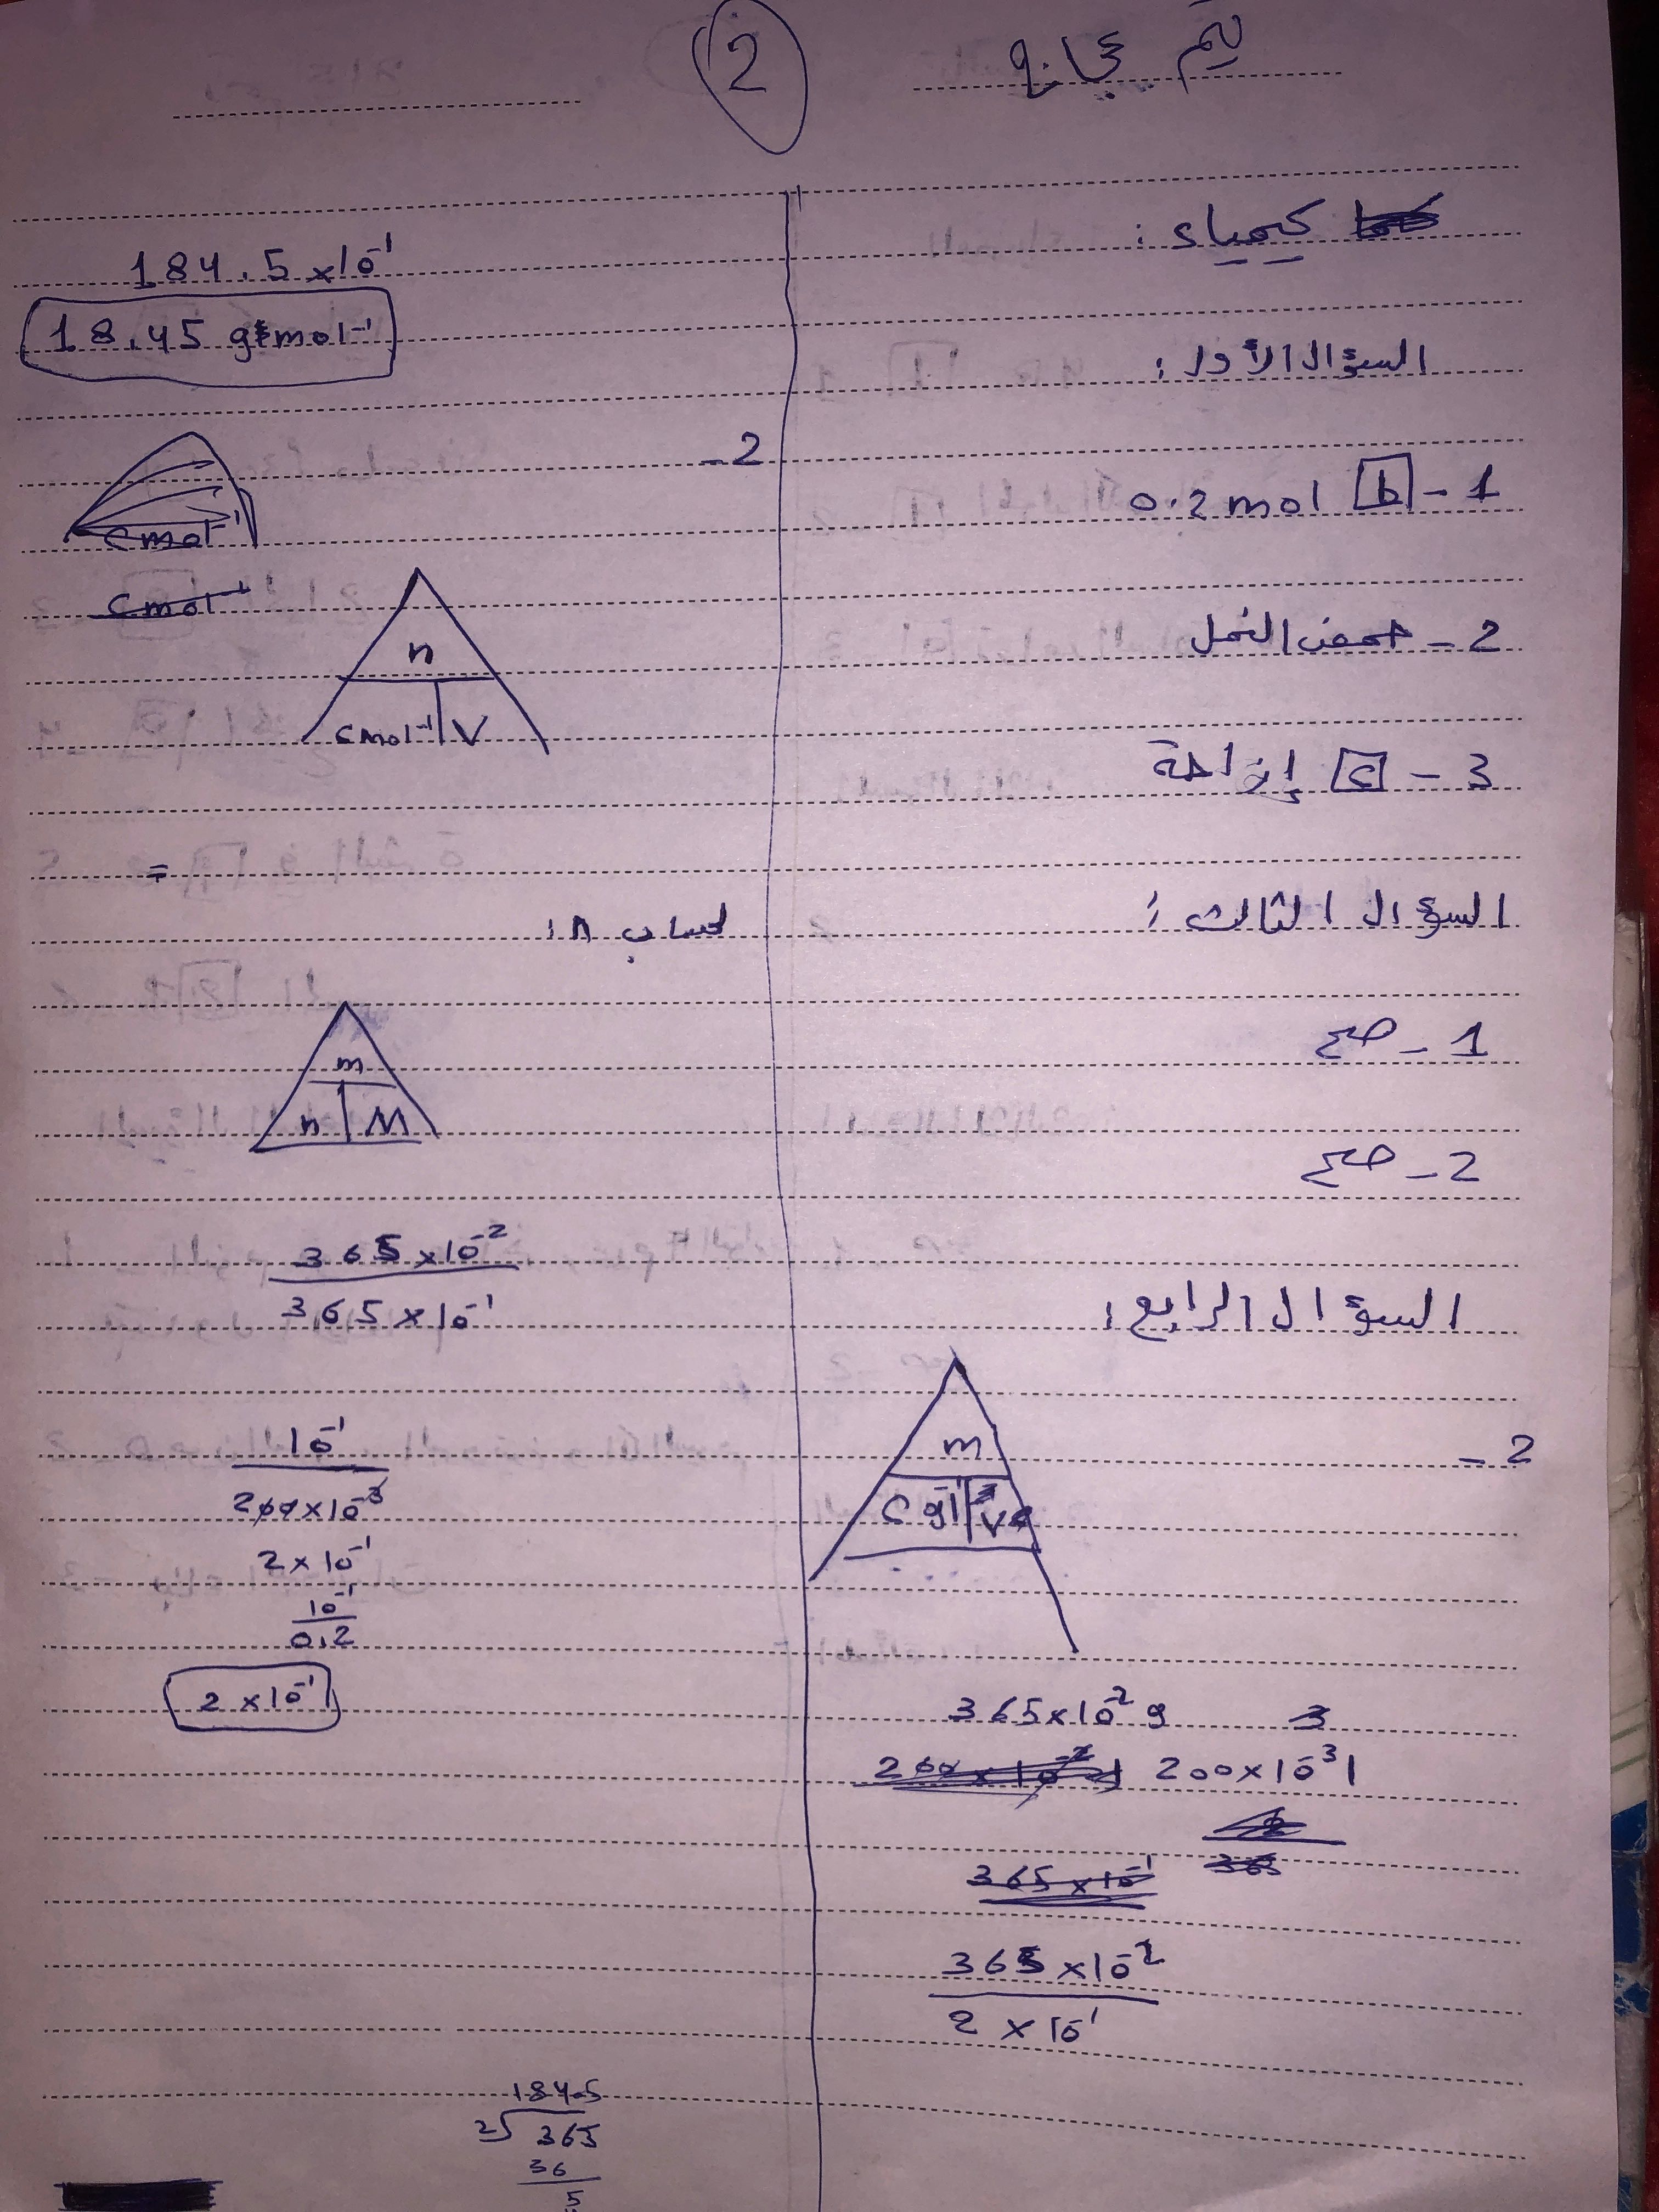 2
كيمياء :
السؤال الأول :
1 - b 0.2 mol
2 - حمض النمل
3 - c إزاحة
السؤال الثالث :
1 - صح
2 - صح
السؤال الرابع :
2 -
m
C gl⁻¹ V
365×10⁻² g
200×10⁻³ l
365 ×10⁻²
2 × 10⁻¹
184.5 ×10⁻¹
18.45 g mol⁻¹
2 -
n
C mol⁻¹ V
=
لحساب n :
m
n M
365 ×10⁻²
365 × 10⁻¹
10⁻¹
200×10⁻³
2 × 10⁻¹
10⁻¹
0.2
2 ×10⁻¹
184.5
2 365
36
5